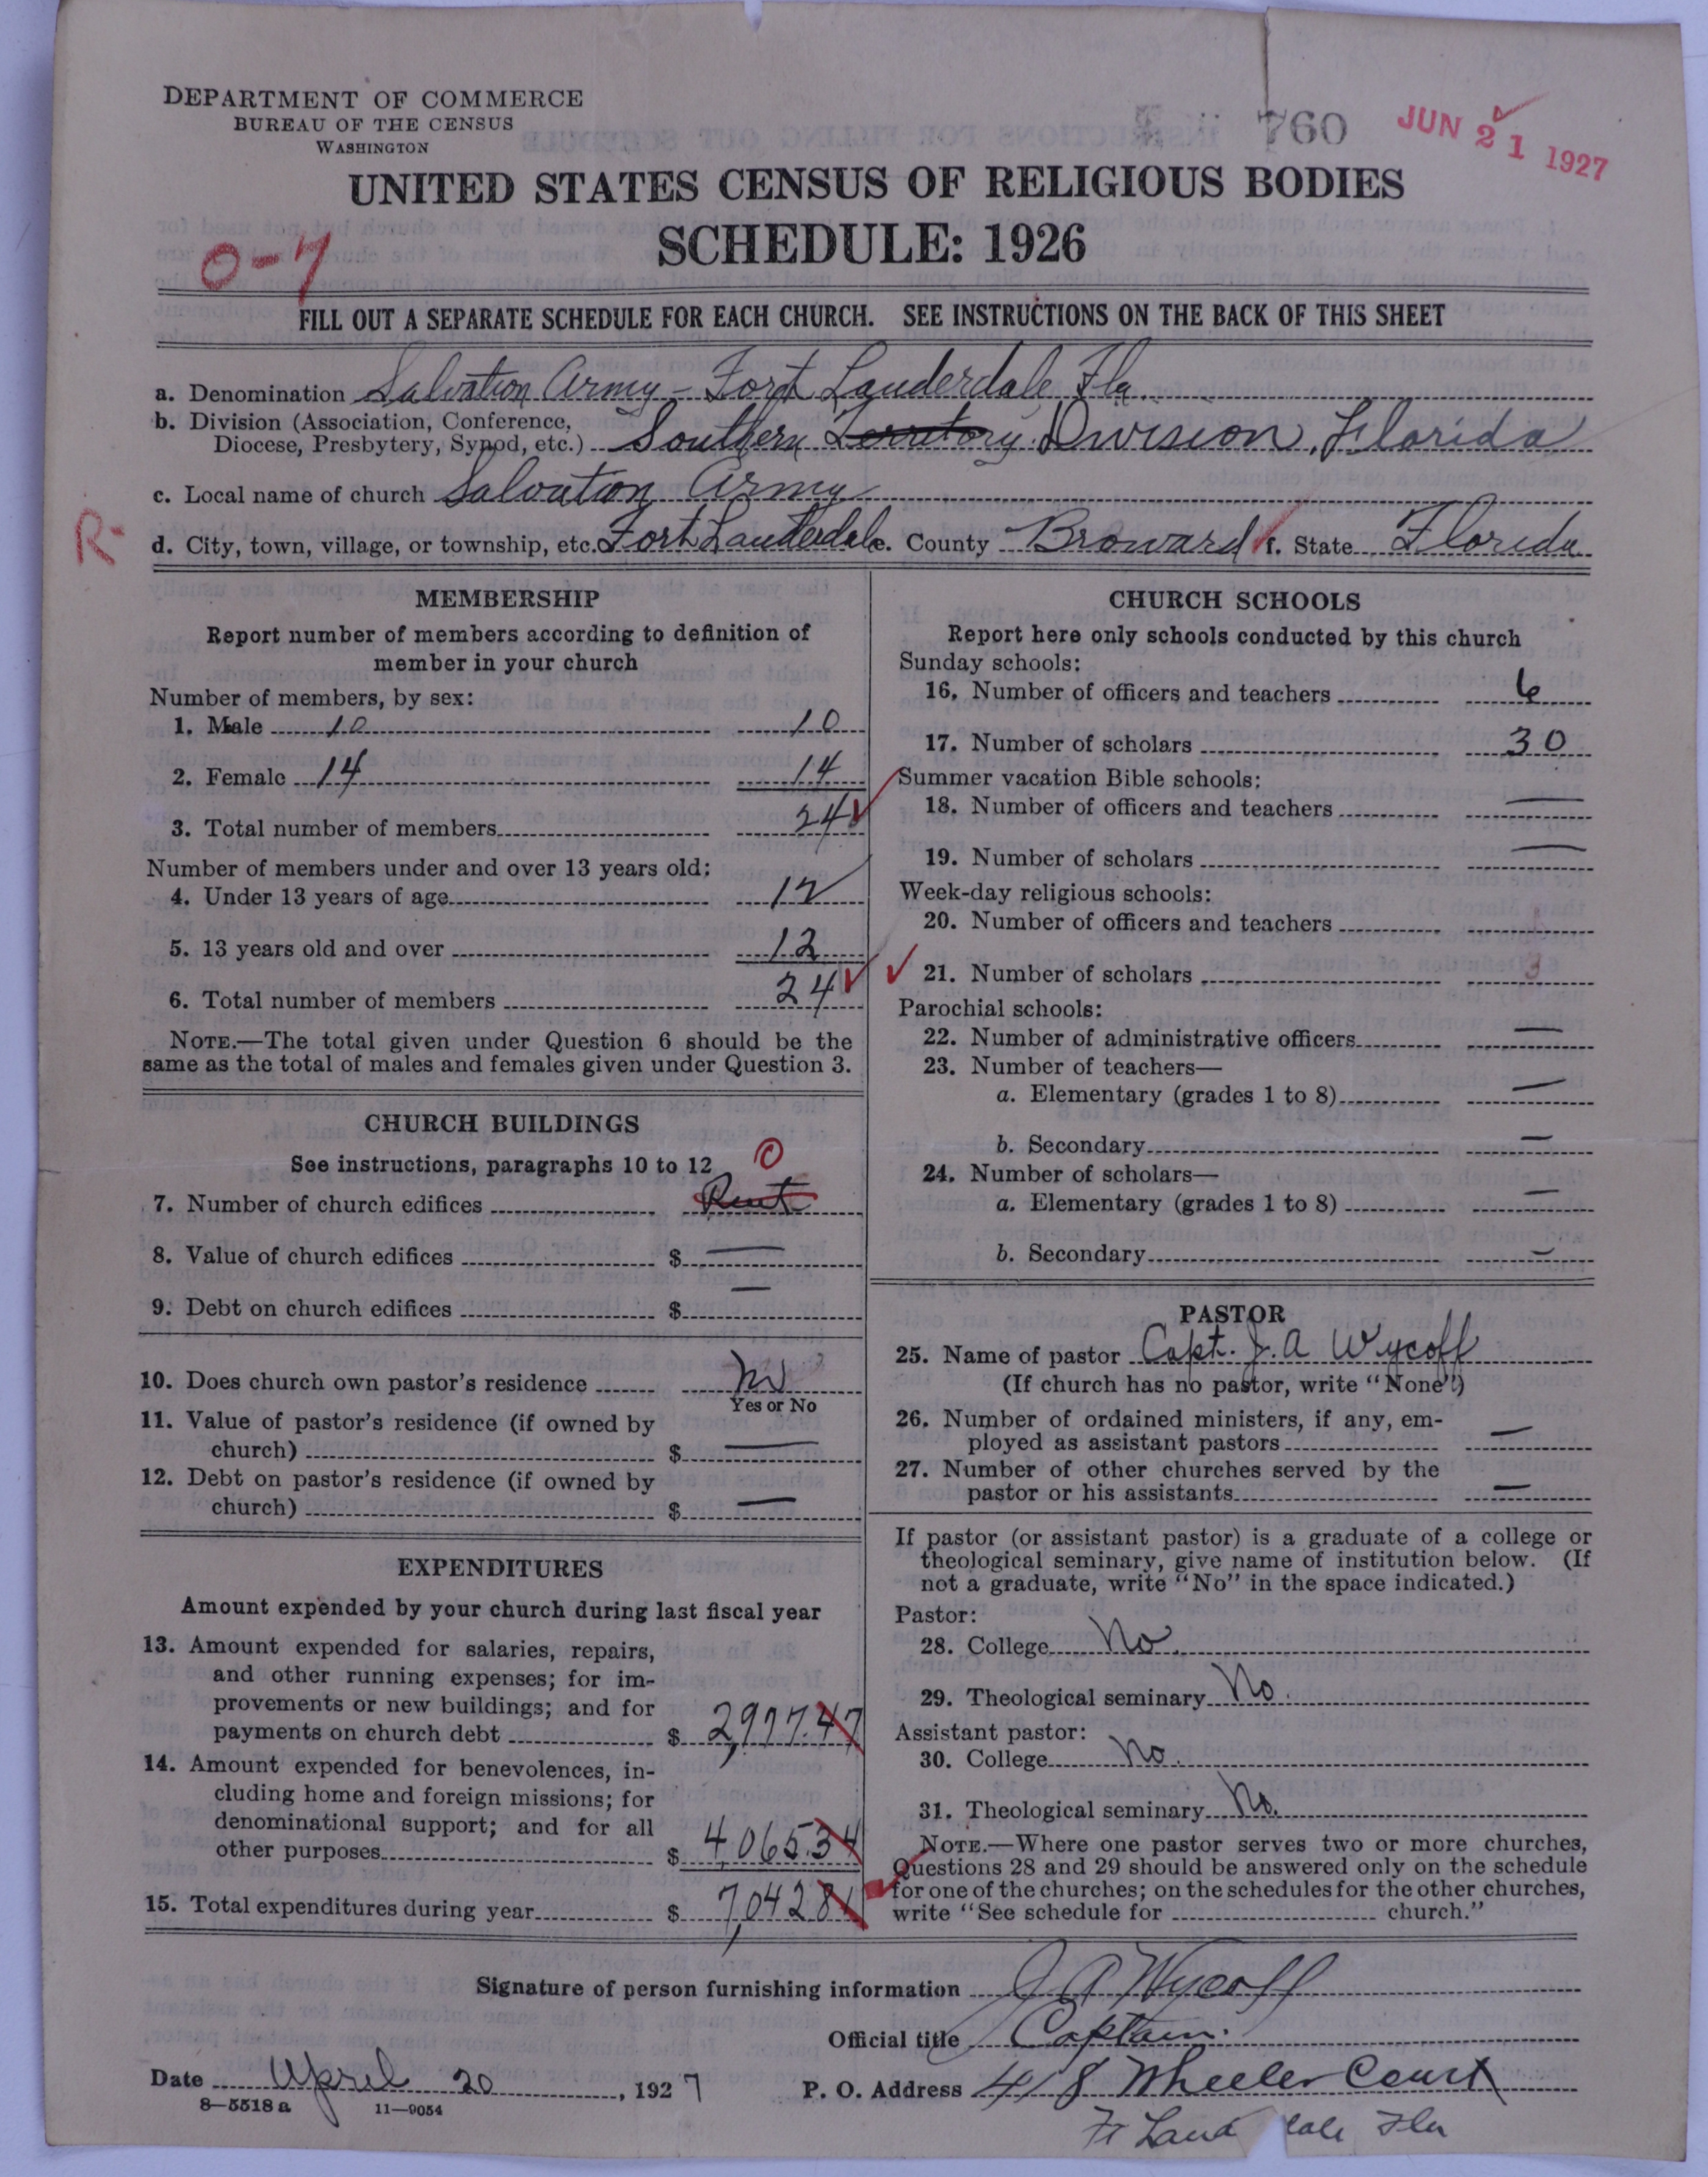 DEPARTMENT OF COMMERCE
BUREAU OF THE CENSUS
WASHINGTON
760
JUN 21 1927
UNITED STATES CENSUS OF RELIGIOUS BODIES
SCHEDULE: 1926
0-7
FILL OUT A SEPARATE SCHEDULE FOR EACH CHURCH. SEE INSTRUCTIONS ON THE BACK OF THIS SHEET
a. Denomination Salvation Army - Fort Lauderdale Fla.
b. Division (Association, Conference,
Diocese, Presbytery, Synod, etc.) Southern Territory. Division, Florida
c. Local name of church Salvation Army
R-
d. City, town, village, or township, etc. Fort Lauderdale e. County Broward f. State Florida
MEMBERSHIP
Report number of members according to definition of
member in your church
Number of members, by sex:
1. Male 10 10
2. Female 14 14
3. Total number of members 24
Number of members under and over 13 years old:
4. Under 13 years of age 12
5. 13 years old and over 12
6. Total number of members 24
NOTE.—The total given under Question 6 should be the
same as the total of males and females given under Question 3.
CHURCH BUILDINGS
See instructions, paragraphs 10 to 12 0
7. Number of church edifices Rent
8. Value of church edifices $ —
9. Debt on church edifices $ —
10. Does church own pastor's residence No
Yes or No
11. Value of pastor's residence (if owned by
church) $ —
12. Debt on pastor's residence (if owned by
church) $ —
EXPENDITURES
Amount expended by your church during last fiscal year
13. Amount expended for salaries, repairs,
and other running expenses; for im-
provements or new buildings; and for
payments on church debt $ 2,977.47
14. Amount expended for benevolences, in-
cluding home and foreign missions; for
denominational support; and for all
other purposes $ 4,065.34
15. Total expenditures during year $ 7,042.81
CHURCH SCHOOLS
Report here only schools conducted by this church
Sunday schools:
16. Number of officers and teachers 6
17. Number of scholars 30
Summer vacation Bible schools:
18. Number of officers and teachers —
19. Number of scholars —
Week-day religious schools:
20. Number of officers and teachers
21. Number of scholars
Parochial schools:
22. Number of administrative officers —
23. Number of teachers—
a. Elementary (grades 1 to 8) —
b. Secondary —
24. Number of scholars—
a. Elementary (grades 1 to 8) —
b. Secondary —
PASTOR
25. Name of pastor Capt. J. A Wycoff
(If church has no pastor, write "None")
26. Number of ordained ministers, if any, em-
ployed as assistant pastors —
27. Number of other churches served by the
pastor or his assistants —
If pastor (or assistant pastor) is a graduate of a college or
theological seminary, give name of institution below. (If
not a graduate, write "No" in the space indicated.)
Pastor:
28. College No.
29. Theological seminary No.
Assistant pastor:
30. College No.
31. Theological seminary No.
NOTE.—Where one pastor serves two or more churches,
Questions 28 and 29 should be answered only on the schedule
for one of the churches; on the schedules for the other churches,
write "See schedule for church."
Signature of person furnishing information J A Wycoff
Official title Captain.
Date April 20, 1927 P. O. Address 418 Wheeler Court
8—5518 a 11—9054
Ft Laud dale Fla